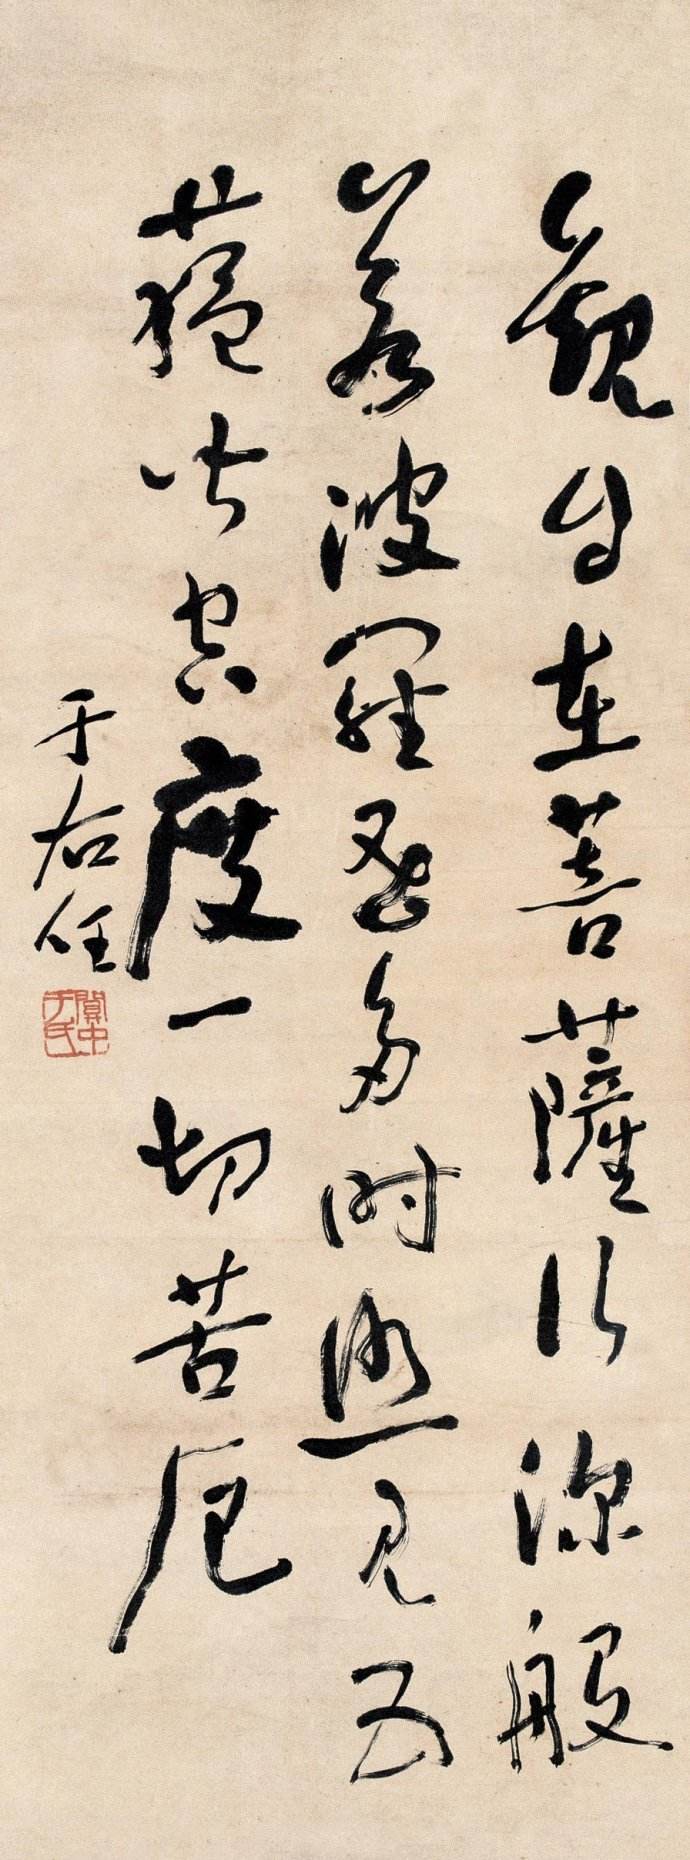 觀自在菩薩行深般
若波羅蜜多時照見五
蘊皆空度一切苦厄
于右任
關中于氏